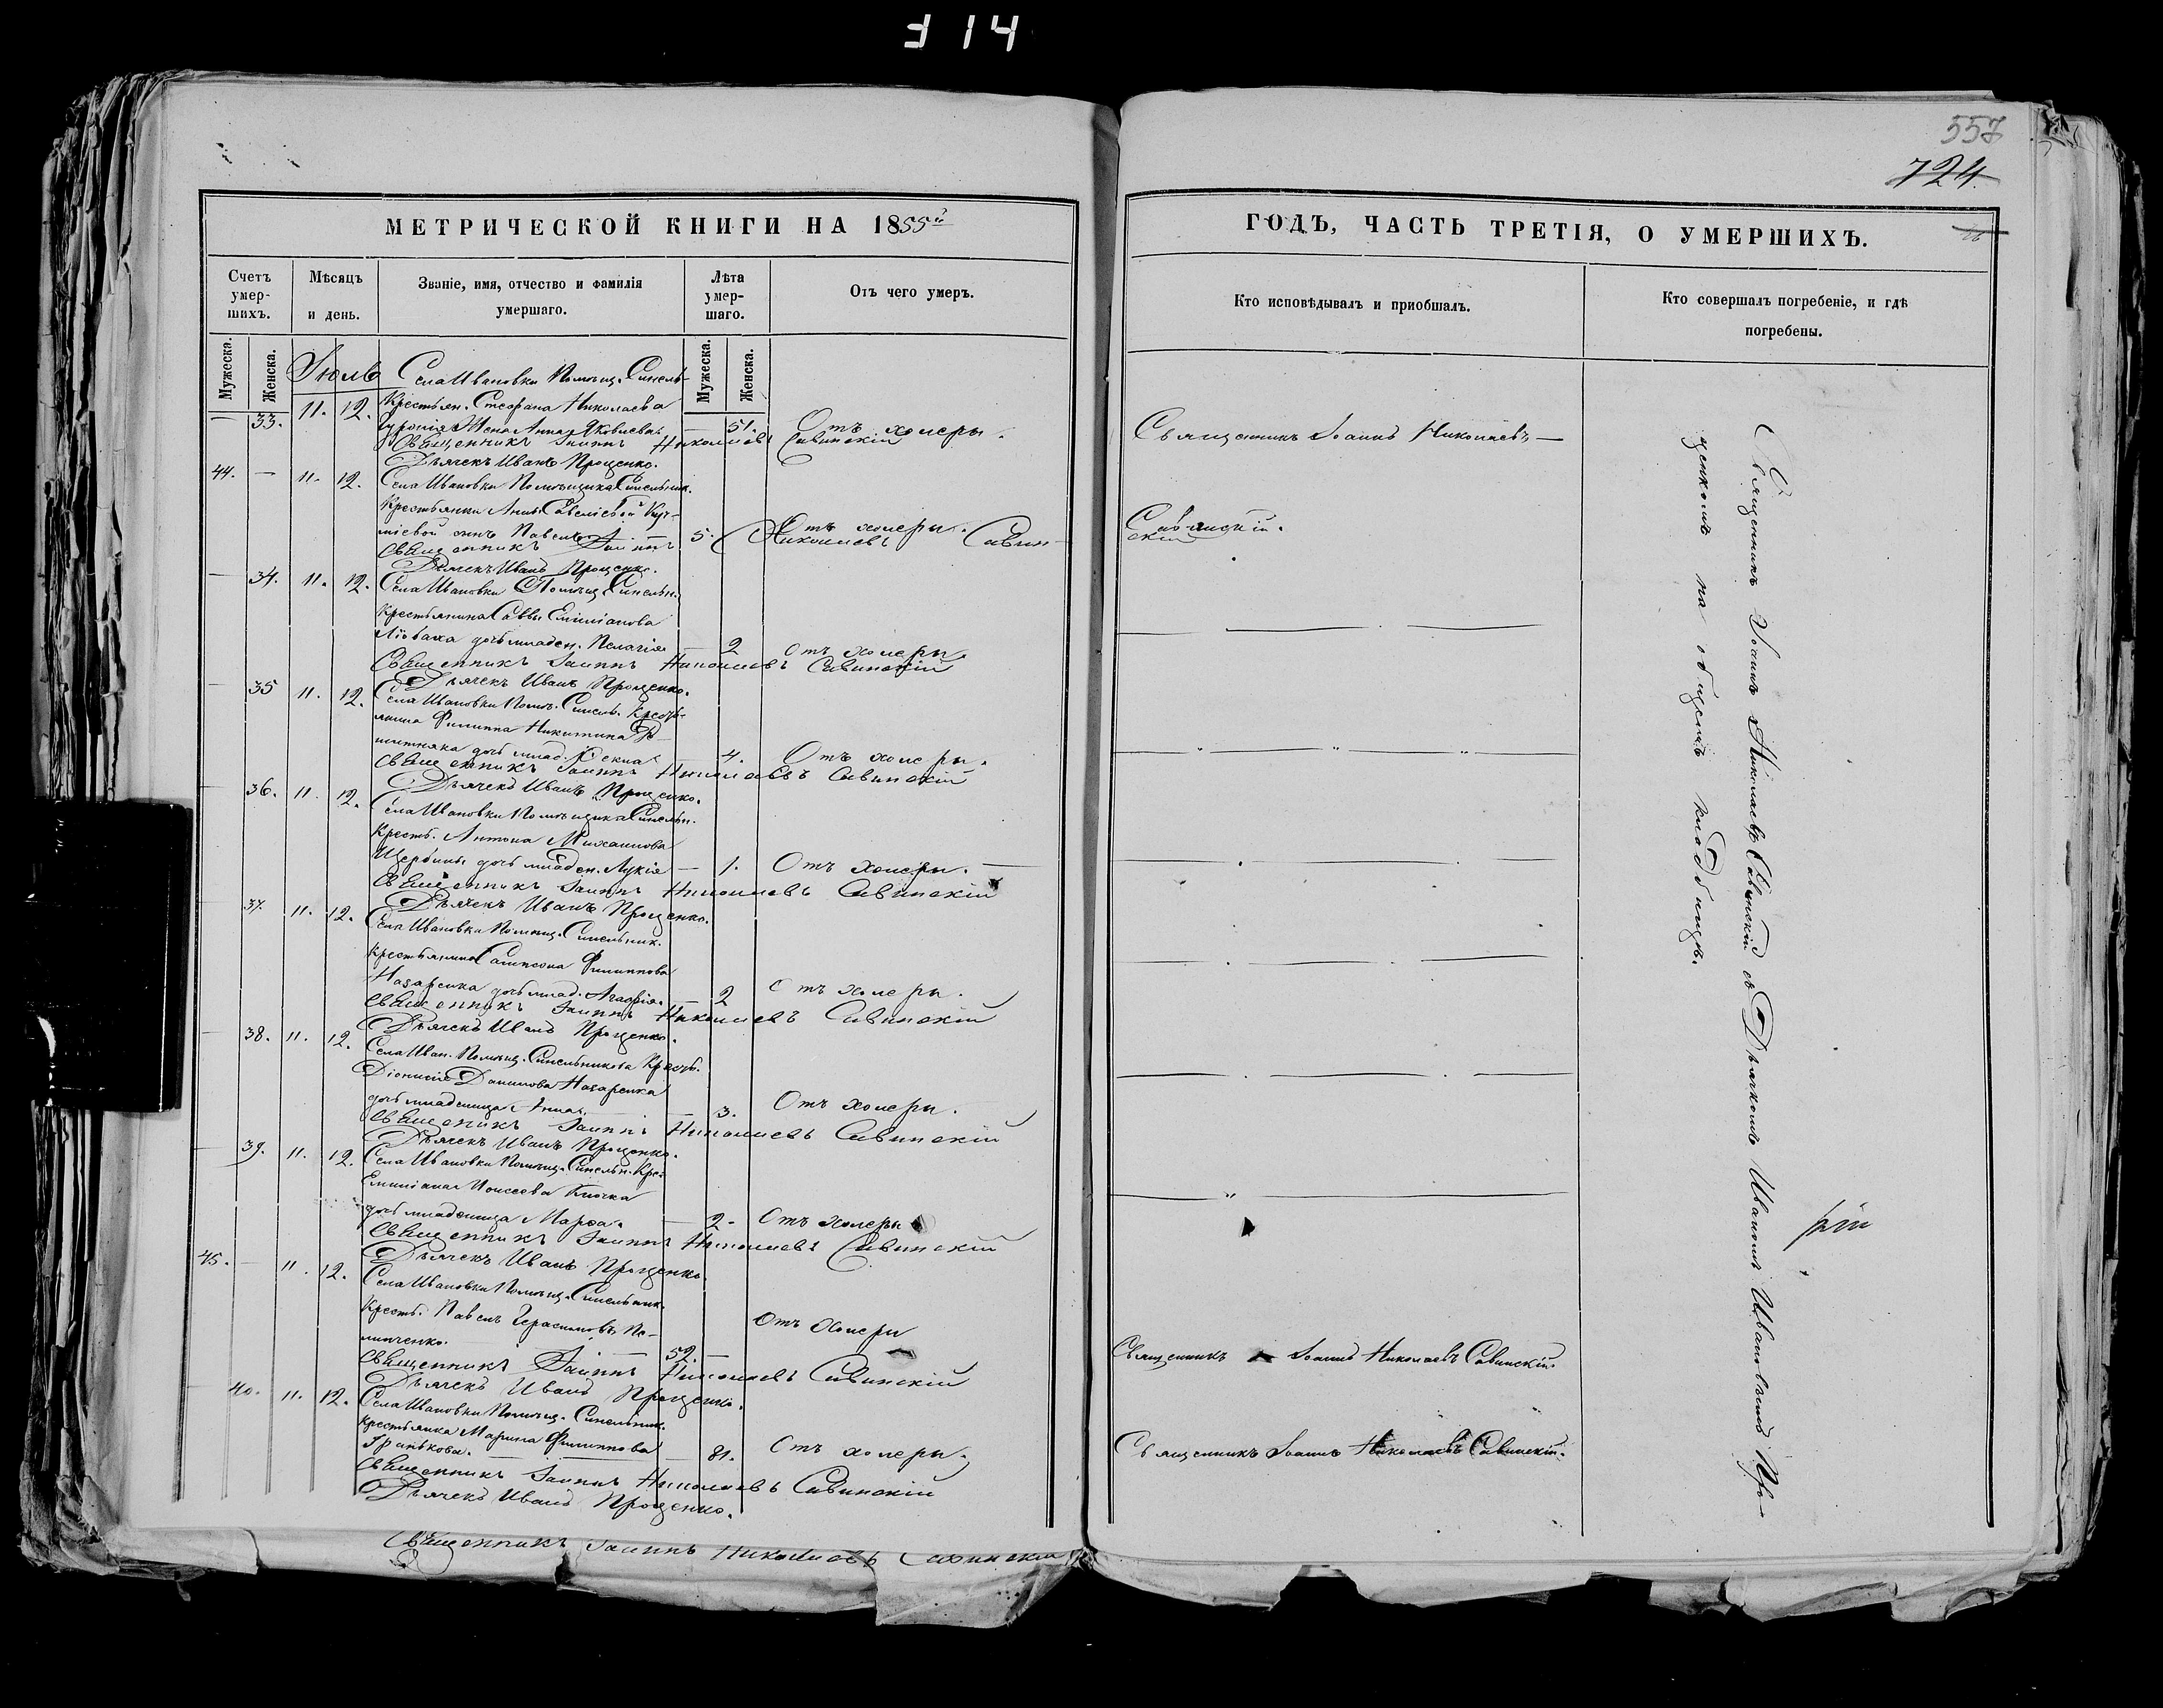 314
557
724.
МЕТРИЧЕСКОЙ КНИГИ НА 1855й
Счетъ умер-шихъ.
Мѣсяцъ и день.
Званіе, имя, отчество и фамилія умершаго.
Лѣта умер-шаго.
Отъ чего умеръ.
Мужеска.
Женска.
Мужеска.
Женска.
Іюль
Села Ивановки Помѣщ. Синель-
— 33. 11. 12. Крестьян. Стефана Николаева
жена Анна Яковлева — 51. Отъ холеры.
Священникъ Іоаннъ Николаевъ Савинскій
Дьячекъ Иванъ Проценко.
44. — 11. 12. Села Ивановки Помѣщика Синельник.
Крестьянки Анны Савеліевой Куч-
міевой сынъ Павелъ 5. Отъ холеры.
Священникъ Іоаннъ Николаевъ Савин-
скій
Дьячекъ Иванъ Проценко.
— 34. 11. 12. Села Ивановки Помѣщ. Синельн.
Крестьянина Саввы Емиліанова
дочь младен. Пелагія — 2 Отъ холеры.
Священникъ Іоаннъ Николаевъ Савинскій
Дьячекъ Иванъ Проценко.
— 35 11. 12. Села Ивановки Помѣ. Синель. Кресть-
янина Филиппа Никитина
дочь млад. 4. Отъ холеры.
Священникъ Іоаннъ Николаевъ Савинскій
Дьячекъ Иванъ Проценко.
— 36. 11. 12. Села Ивановки Помѣщика Синельн.
Крестьян. Антона Михаилова
Щербины дочь младен. Лукія — 1. Отъ холеры. —
Священникъ Іоаннъ Николаевъ Савинскій
Дьячекъ Иванъ Проценко.
— 37. 11. 12. Села Ивановки Помѣщ. Синельник.
Крестьянина Сампсона Филиппова
Назаренка дочь млад. Агафія. — 2 Отъ холеры.
Священникъ Іоаннъ Николаевъ Савинскій
Дьячекъ Иванъ Проценко.
— 38. 11. 12. Села Иван. Помѣщ. Синельникова Кресть.
Діонисія Данилова Назаренка
дочь младеница Анна. — 3. Отъ холеры.
Священникъ Іоаннъ Николаевъ Савинскій
Дьячекъ Иванъ Проценко.
— 39. 11. 12. Села Ивановки Помѣщ. Синельн. Крес.
Емиліана Моисеева Клочка
дочь младеница Марѳа. — 2. Отъ холеры
Священникъ Іоаннъ Николаевъ Савинскій
Дьячекъ Иванъ Проценко.
45. — 11. 12. Села Ивановки Помѣщ. Синельник.
Крестьян. Павелъ Герасимовъ Пи-
липченко. — 52. — Отъ Холеры
Священникъ Іоаннъ Николаевъ Савинскій
Дьячекъ Иванъ Проценко.
— 40. 11. 12. Села Ивановки Помѣщ. Синельник.
Крестьянка Марина Филиппова
— 81. Отъ холеры.
Священникъ Іоаннъ Николаевъ Савинскій
Дьячекъ Иванъ Проценко.
Священникъ Іоаннъ Николаевъ Савинскій
ГОДЪ, ЧАСТЬ ТРЕТІЯ, О УМЕРШИХЪ.
Кто исповѣдывалъ и пріобщалъ.
Кто совершалъ погребеніе, и гдѣ погребены.
Священникъ Іоаннъ Николаевъ —
Савинскій.
Священникъ Іоаннъ Николаевъ Савинскій.
Священникъ Іоаннъ Николаевъ Савинскій.
Священникъ Іоаннъ Николаевъ Савинскій съ Дьячкомъ Иваномъ Ивановымъ Про-
ценкомъ на общемъ кладбищѣ.